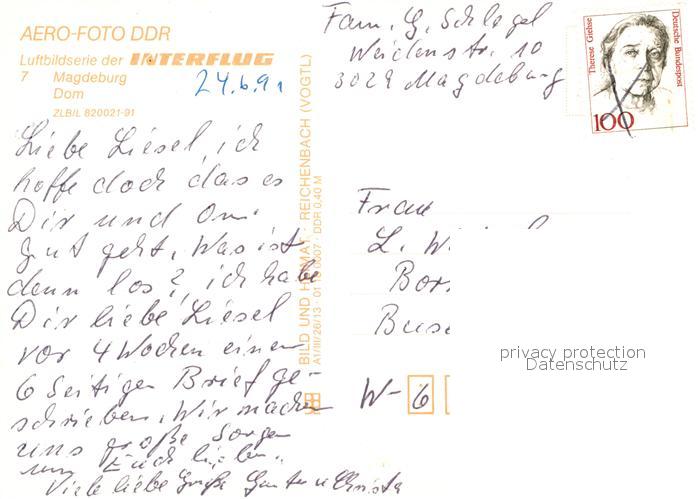 AERO-FOTO DDR
Luftbildserie der INTERFLUG
7 Magdeburg
Dom
ZLB/L 820021-91
24.6.91
Liebe Liesel, ich
hoffe doch das es
Dir und Omi
gut geht, Was ist
denn los?, ich habe
Dir liebe Liesel
vor 4 Wochen einen
6 Seitigen Brief ge-
schrieben. Wir machen
uns große Sorgen
um Euch lieben.
Viele liebe Grüße Günter u Christa
BILD UND HEIMAT · REICHENBACH (VOGTL)
A1/III/26/13 DDR 0,40 M
Fam. G. Schlegel
Weidenstr. 10
3029 Magdeburg
Therese Giehse
Deutsche Bundespost
100
Frau
L. W
Bors
Buse
W-6
privacy protection
Datenschutz